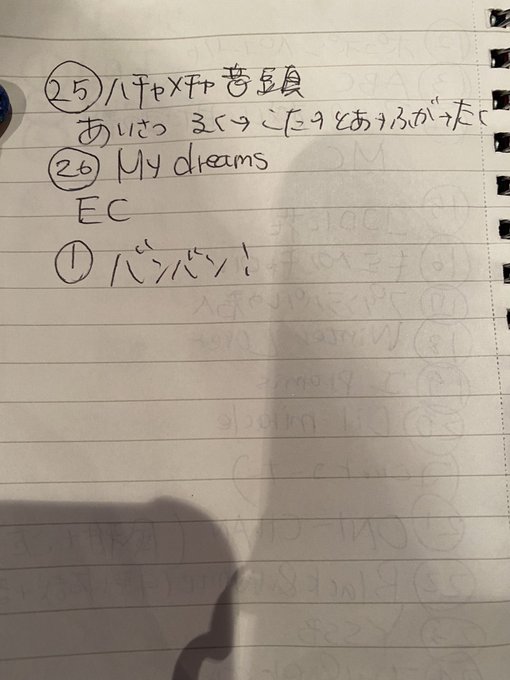 ㉕ ハチャメチャ音頭
あいさつ るく→こた→とあ→ふが→たく
㉖ My dreams
EC
① バンバン!